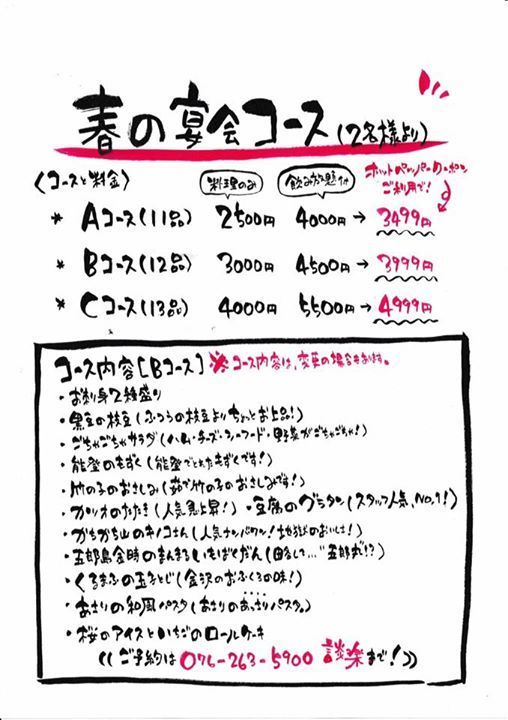 春の宴会コース(2名様より)
〈コースと料金〉 料理のみ 飲み放題付 ホットペッパークーポン
ご利用で!
* Aコース(11品) 2500円 4000円→3499円
* Bコース(12品) 3000円 4500円→3999円
* Cコース(13品) 4000円 5500円→4999円
コース内容[Bコース]※コース内容は、変更の場合有ります。
・お刺身2種盛り
・黒豆の枝豆(ふつうの枝豆よりちょっとお上品!)
・ごちゃごちゃサラダ(ハム・チーズ・シーフード・野菜がごちゃごちゃ!)
・能登のもずく(能登でとれたもずくです!)
・竹の子のおさしみ(茹で竹の子のおさしみです!)
・カツオのたたき(人気急上昇!)・豆腐のグラタン(スタッフ人気、No.1!)
・かちかち山のキノコさん(人気ナンバーワン!地獄のおいしさ!)
・五郎島金時のまんまるいもばくだん(略して…"五郎丸"!?)
・くるまふの玉子とじ(金沢のおふくろの味!)
・あさりの和風パスタ(あさりのあっさりパスタ。)
・桜のアイスといちごのロールケーキ
((ご予約は 076-263-5900 談楽まで!))